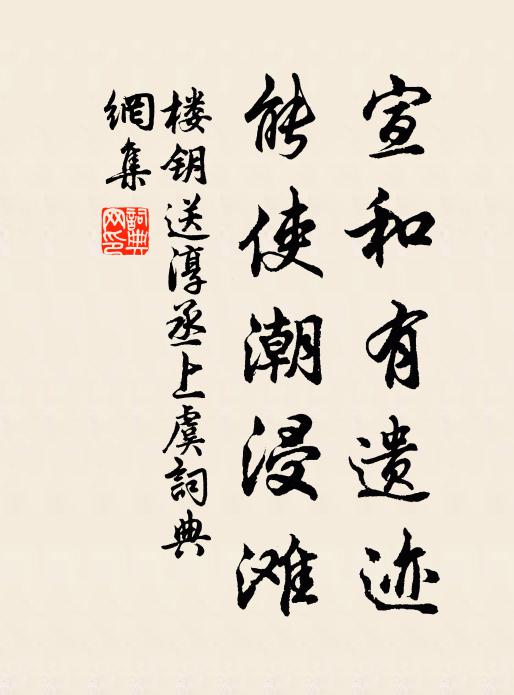 宣和有遗迹
能使潮浸滩
楼钥送淳丞上虞詞典
網集
詞典
网印